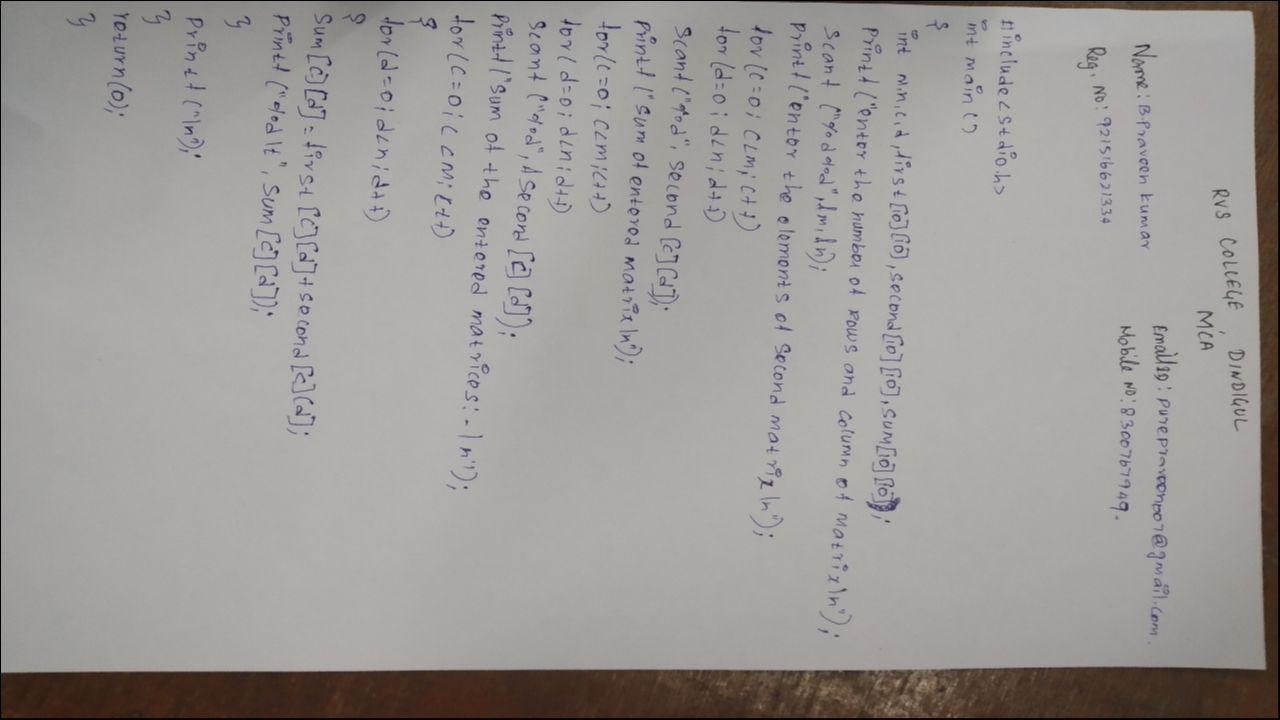 RVS COLLEGE, DINDIGUL
MCA
Name: B.Praveen kumar
EmailID: purepraveen007@gmail.com.
Reg. No: 921516621334
Mobile NO: 8300767949.
#include<stdio.h>
int main ()
{
int m,n,c,d,first[10][10],second[10][10],sum[10][10];
printf("enter the number of rows and column of matrix\n");
Scanf ("%d%d",&m,&n);
printf("enter the elements of second matrix\n");
for(c=0; c<m; c++)
for(d=0; d<n; d++)
Scanf("%d", second [c][d]);
printf("sum of entered matrix\n");
for(c=0; c<m; c++)
for(d=0; d<n; d++)
Scanf ("%d", &second [c][d]);
printf("sum of the entered matrices:-\n");
for(c=0; c<m; c++)
{
for(d=0; d<n; d++)
{
Sum[c][d] = first [c][d]+second[c][d];
printf("%d\t", sum[c][d]);
}
printf("\n");
}
return(0);
}